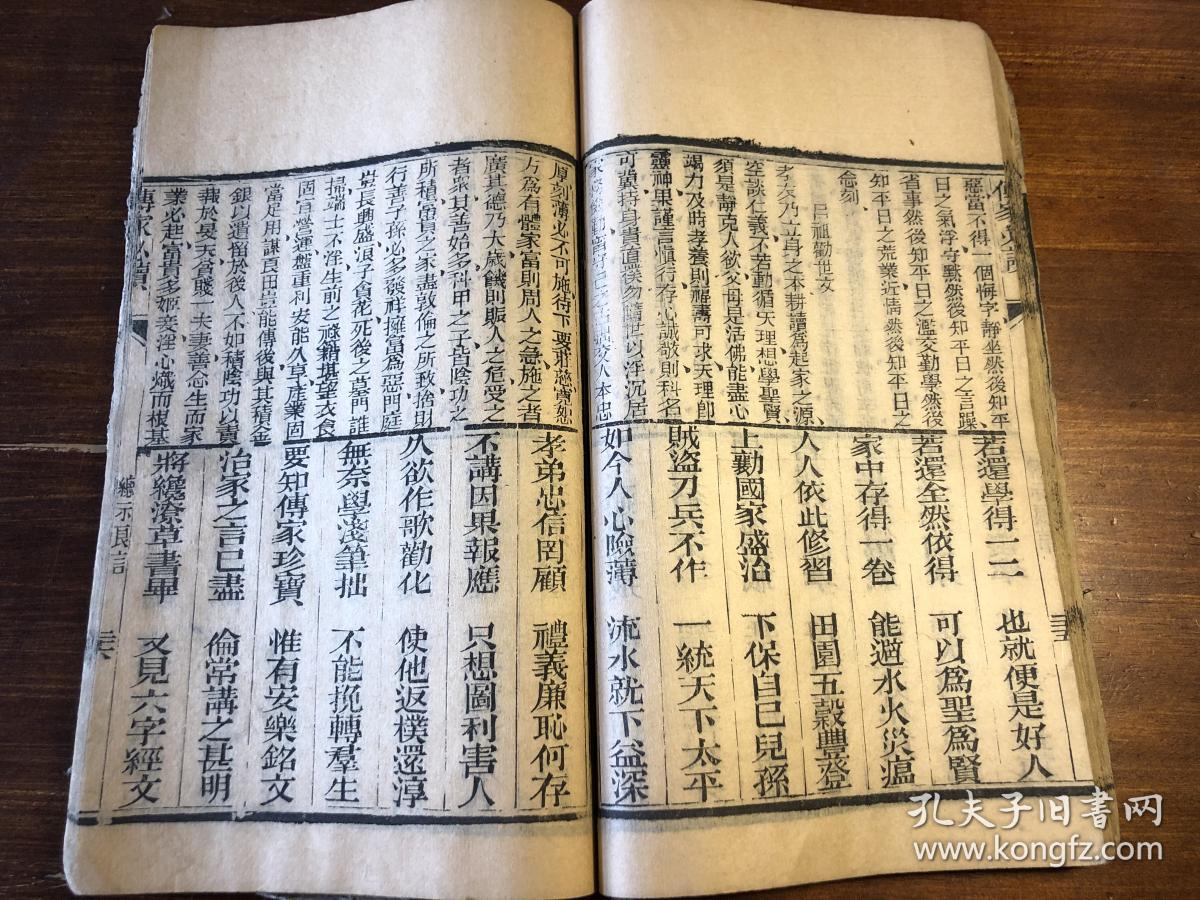 惡當不得一個悔字靜坐然後知平
日之氣浮守默然後知平日之言躁
省事然後知平日之濫交勤學然後
知平日之荒業近情然後知平日之
念刻
呂祖勸世文
孝友乃立身之本耕讀爲起家之源
空談仁義不若動循天理想學聖賢
須是靜克人欲父母是活佛能盡心
竭力及時孝養則福壽可求天理卽
靈神果謹言愼行存心誠敬則科名
可冀持身貴直樸勿隨世以浮沉居
家 交人本忠
若還學得一二 也就便是好人
若還全然依得 可以爲聖爲賢
家中存得一卷 能遏水火災瘟
人人依此修習 田園五穀豐登
上勸國家盛治 下保自己兒孫
賊盜刀兵不作 一統天下太平
如今人心險薄 流水就下益深
三五
厚刻薄必不可施待下要莊慈寬恕
方爲有體家富則周人之急施之者
廣其德乃大歲饑則賑人之危受之
者衆其善始多科甲之子皆陰功之
所積富貴之家盡敦倫之所致捨財
行善子孫必多發祥擁富爲惡門庭
豈長興盛浪子貪花死後之墓門誰
掃端士不淫生前之祿籍堪望衣食
固宜營運盤重利安能久享產業固
當足用謀良田豈能傳後與其積金
銀以遺留於後人不如積陰功以責
報於昊天貧賤一夫妻善念生而家
業必起富貴多姬妾淫心熾而根基
孝弟忠信罔顧 禮義廉恥何存
不講因果報應 只想圖利害人
久欲作歌勸化 使他返樸還淳
無奈學淺筆拙 不能挽轉羣生
要知傳家珍寶 惟有安樂銘文
治家之言已盡 倫常講之甚明
將纔潦草書畢 又見六字經文
傳家必讀
總示良言
三六
孔夫子旧书网
www.kongfz.com